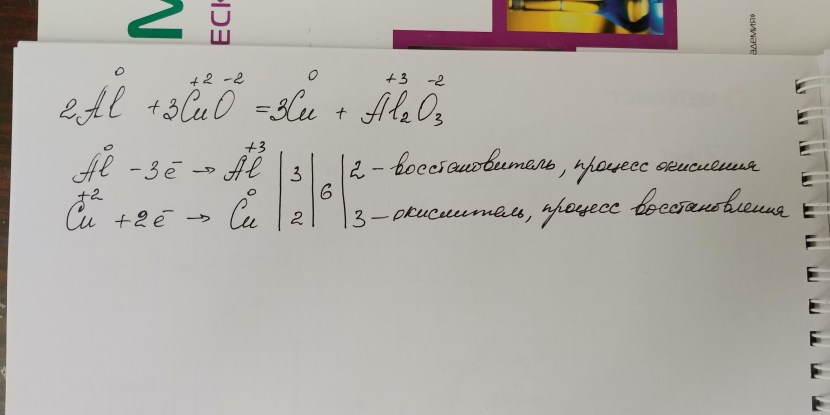 М
ЕСК
адемия»
0 +2 -2 0 +3 -2
2Al + 3CuO = 3Cu + Al₂O₃
0 +3
Al - 3ē → Al | 3 | 6 | 2 - восстановитель, процесс окисления
+2 0
Cu + 2ē → Cu | 2 | | 3 - окислитель, процесс восстановления